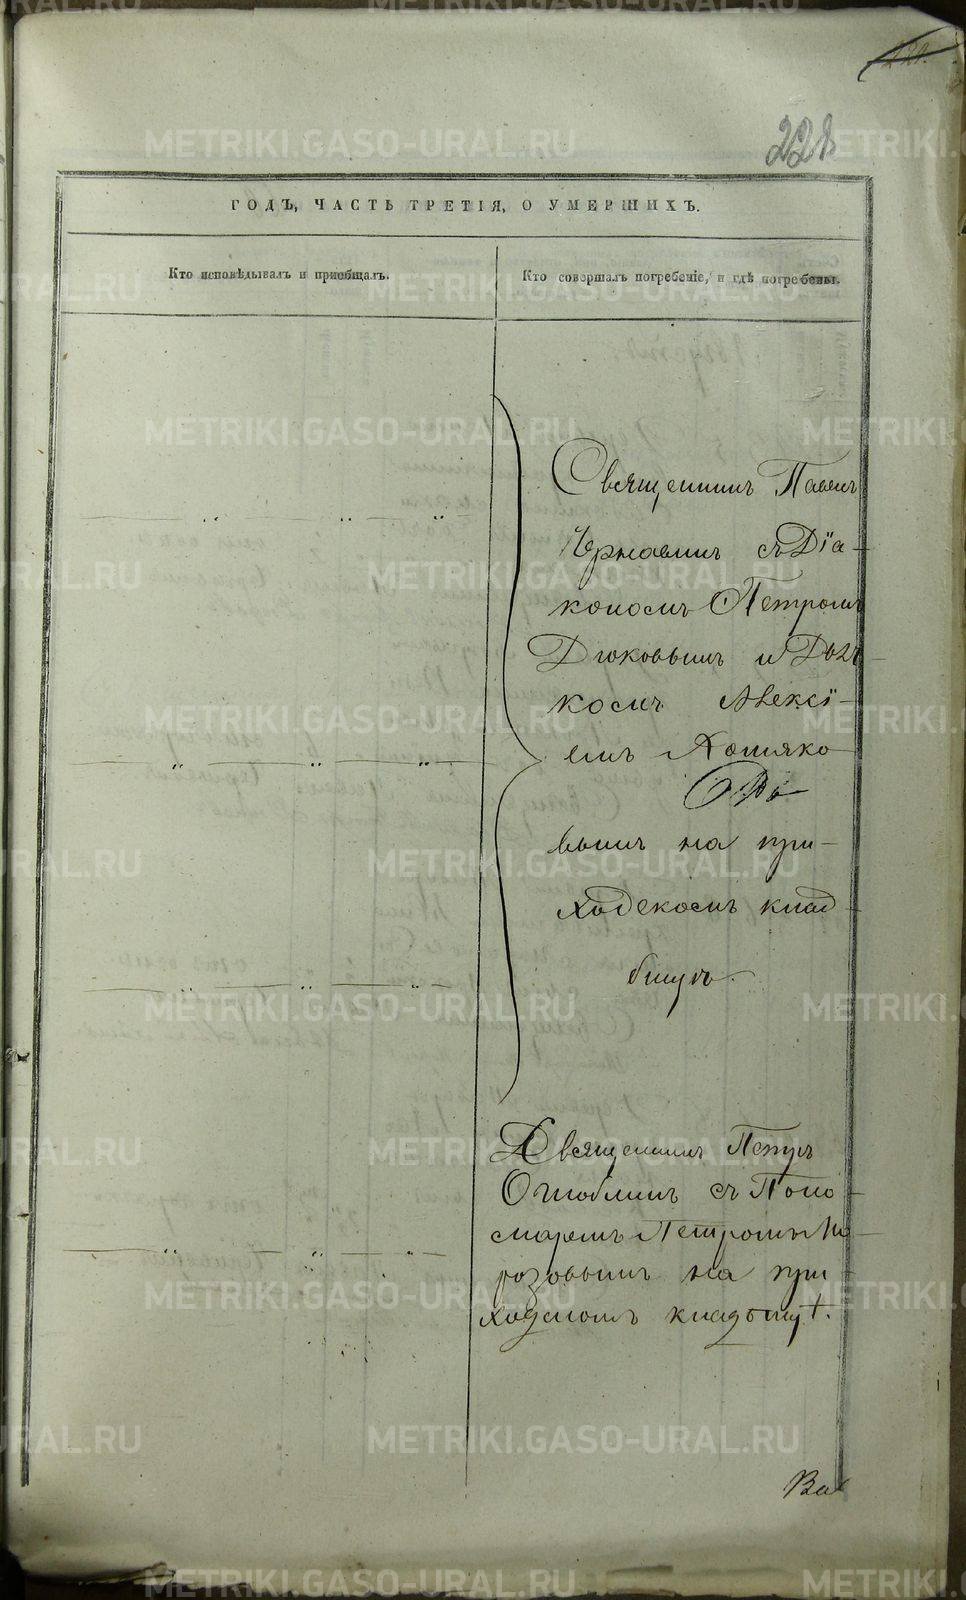 228
ГОДЪ, ЧАСТЬ ТРЕТІЯ, О УМЕРШИХЪ.
Кто исповѣдывалъ и пріобщалъ.
Кто совершалъ погребеніе, и гдѣ погребены.
Священникъ Павелъ
Чернавинъ съ Діа-
кономъ Петромъ
Дюковымъ и Дьяч-
комъ Алексі-
емъ Хомяко-
вымъ на при-
ходскомъ клад-
бищѣ.
Священникъ Петръ
Оглоблинъ съ Поно-
маремъ Петромъ Мо-
розовымъ на при-
ходскомъ кладбищѣ.
METRIKI.GASO-URAL.RU